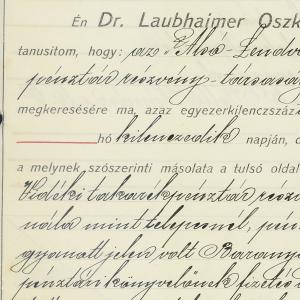 Én Dr. Laubhaimer Oszk
tanusitom, hogy: az „Alsó-Lendva
pénztár részvény-társaság
megkeresésére ma, azaz egyezerkilenczszáz
hó kilenczedik napján, d
a melynek szószerinti másolata a tulsó oldal
Vidéki takarékpénztár rész
nálla mint telepesnél, pén
gyanatt jelen volt Baranya
pénztári könyvelőnek fizetés